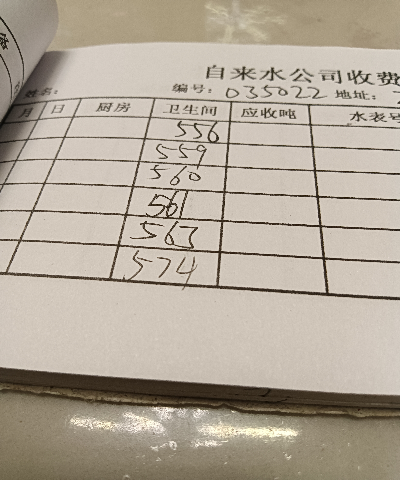 自来水公司收费
姓名: 编号: 035022 地址:
月 日 厨房 卫生间 应收吨 水表号
556
559
560
561
563
574